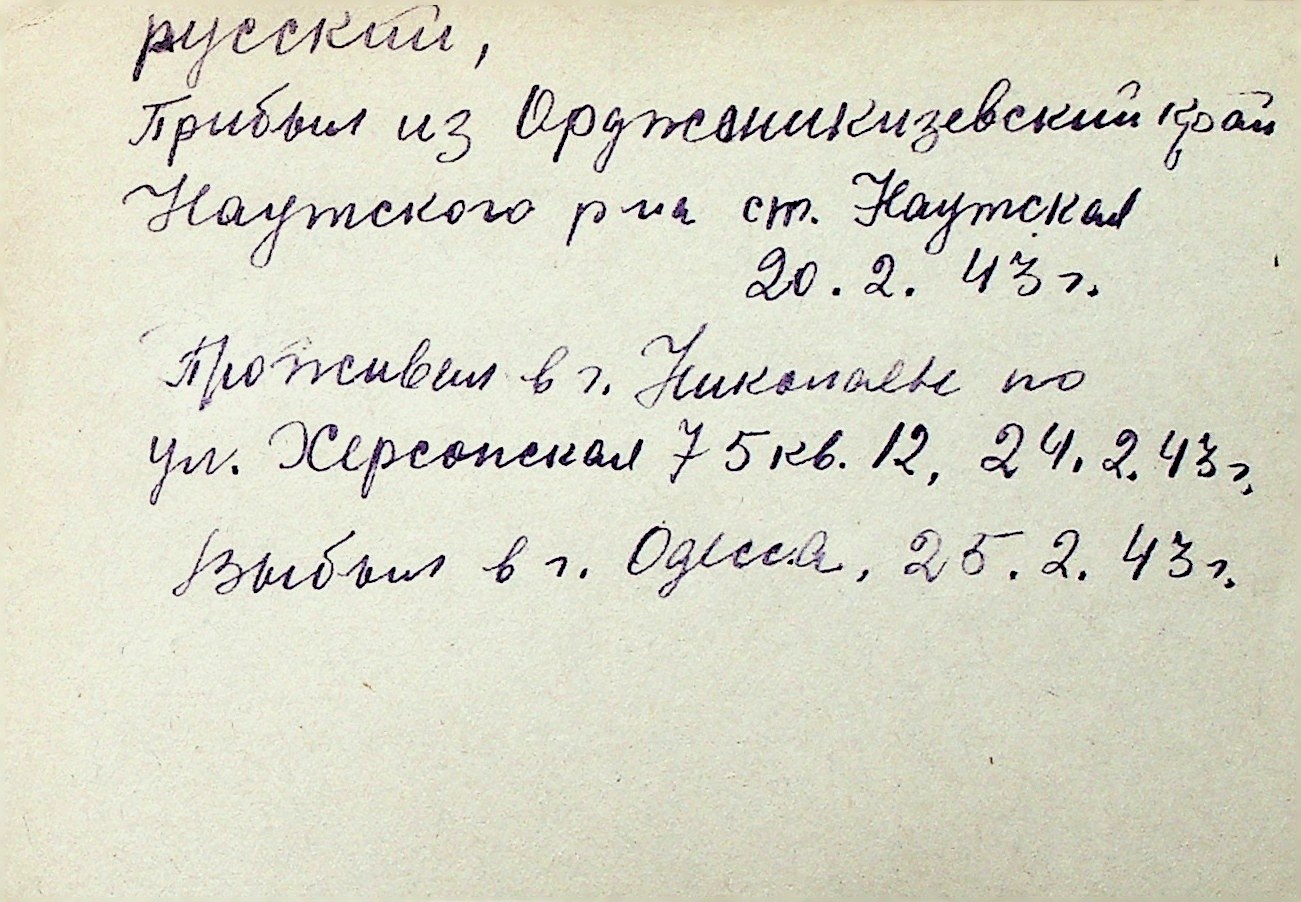 русский,
Прибыл из Орджоникизевский край
Наутского р-на ст. Наутская
20. 2. 43 г.
Проживал в г. Николаеве по
ул. Херсонская 75 кв. 12, 24. 2. 43 г.
Выбыл в г. Одесса, 25. 2. 43 г.